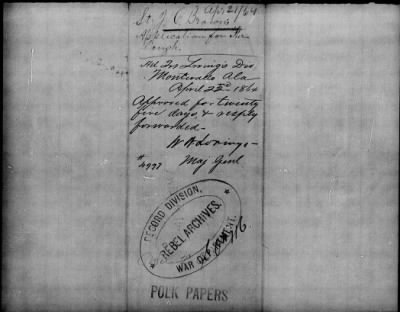 Apr 21/64
Lt. J. C.
Application for Fur
lough.
Hd Qrs Loring's Div
Montevallo Ala
April 22nd 1864
Approved for twenty
five days, & respty
forwarded—
W W Loring—
Maj Genl
RECORD DIVISION.
REBEL ARCHIVES.
WAR DEPARTMENT.
POLK PAPERS